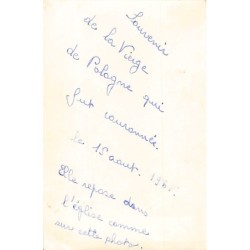 Souvenir
de la Vierge
de Pologne qui
fut couronnée.
le 15 aout. 1968.
Elle repose dans
l'église comme
sur cette photo.